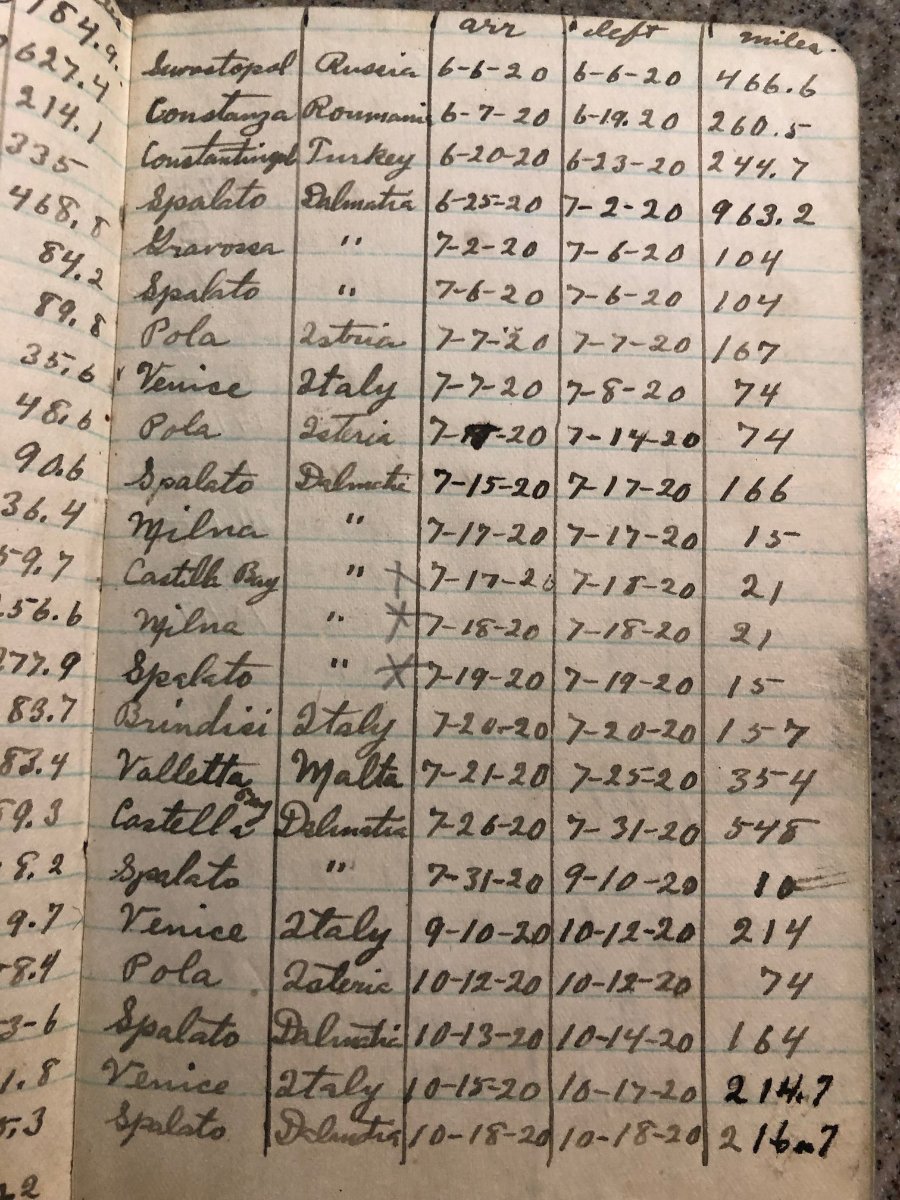 arr left miles.
184.9. Sevastopol Russia 6-6-20 6-6-20 466.6
627.4 Constanza Roumania 6-7-20 6-19.20 260.5
214.1 Constantinopl Turkey 6-20-20 6-23-20 244.7
335 Spalato Dalmatia 6-25-20 7-2-20 963.2
468.8 Gravossa " 7-2-20 7-6-20 104
84.2 Spalato " 7-6-20 7-6-20 104
89.8 Pola Istria 7-7-20 7-7-20 167
35.6 Venise Italy 7-7-20 7-8-20 74
48.6 Pola Isteria 7- -20 7-14-20 74
90.6 Spalato Dalmatia 7-15-20 7-17-20 166
36.4 Milna " 7-17-20 7-17-20 15
59.7 Castella Bay " X 7-17-20 7-18-20 21
256.6 Milna " X 7-18-20 7-18-20 21
277.9 Spalato " X 7-19-20 7-19-20 15
83.7 Brindisi Italy 7-20-20 7-20-20 157
83.4 Valletta Malta 7-21-20 7-25-20 354
59.3 Castella Bay Dalmatia 7-26-20 7-31-20 548
8.2 Spalato " 7-31-20 9-10-20 10
9.7 Venice Italy 9-10-20 10-12-20 214
8.4 Pola Isteria 10-12-20 10-12-20 74
3-6 Spalato Dalmatia 10-13-20 10-14-20 164
1.8 Venice Italy 10-15-20 10-17-20 214.7
5.3 Spalato Dalmatia 10-18-20 10-18-20 216.7
2